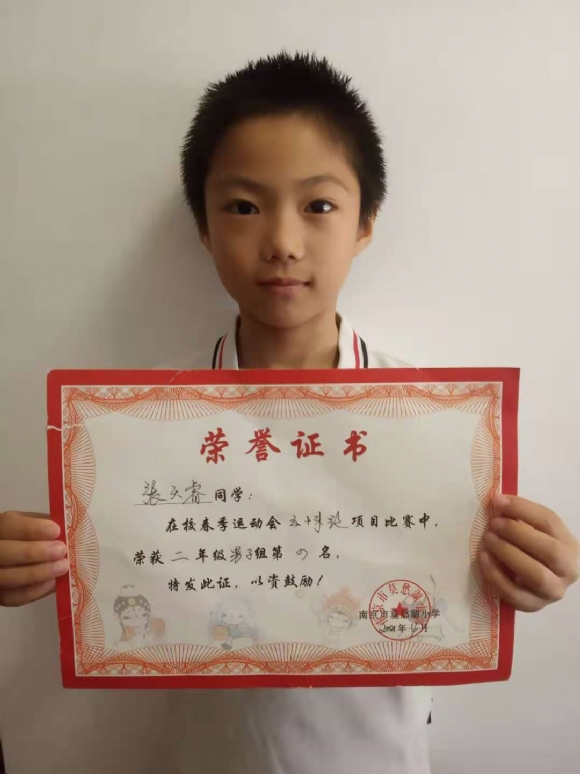 荣誉证书
張天睿同学：
在校春季运动会五十米跑项目比赛中，
荣获二年级男子组第四名，
特发此证，以资鼓励！
南京市莫愁湖小学
2021年 月